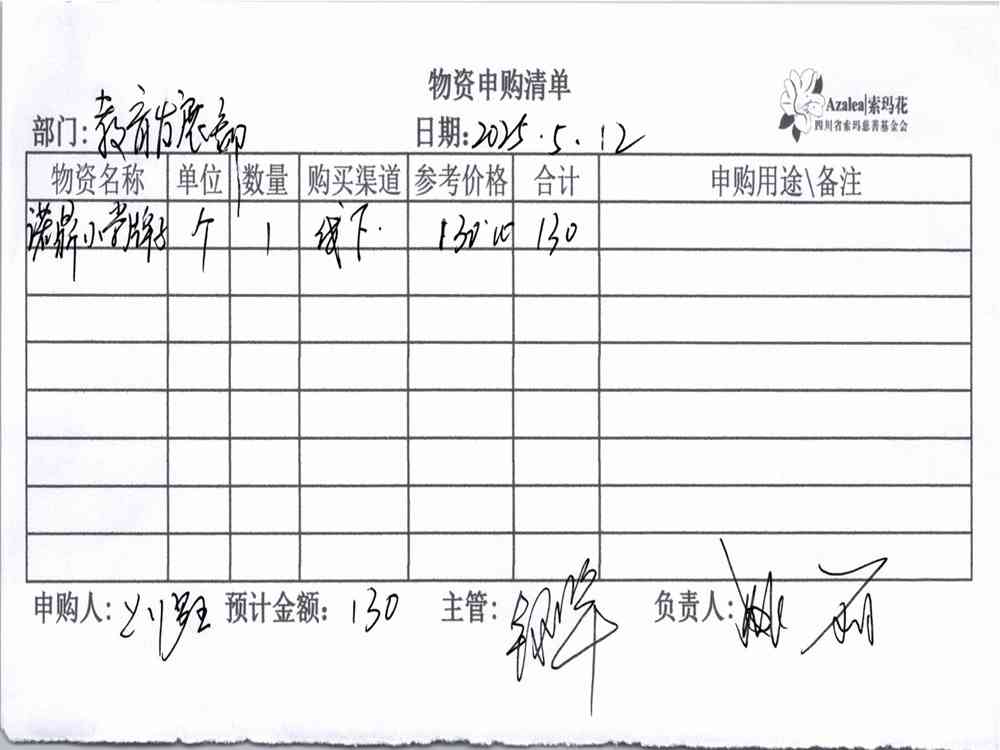 物资申购清单
Azalea|索玛花
四川省索玛慈善基金会
部门:教育发展部 日期:2025.5.12
物资名称 单位 数量 购买渠道 参考价格 合计 申购用途\备注
诺鼎小学牌子 个 1 线下. 130 130
申购人: 预计金额: 130 主管: 负责人:姚丽